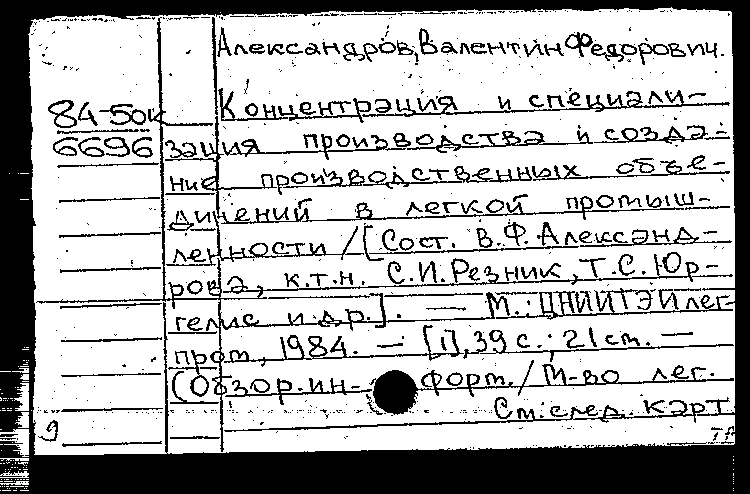 Александров, Валентин Федорович.
84-50к
6696
Концентрация и специали-
зация производства и созда-
ние производственных объе-
динений в легкой промыш-
ленности / [Сост. В.Ф. Александ-
рова, к.т.н. С.И. Резник, Т.С. Юр-
гелис и др.]. — М.: ЦНИИТЭИлег-
пром, 1984. — [1], 39 с.; 21 см. —
(Обзор. ин- форм. / М-во лег.
См. след. карт
9